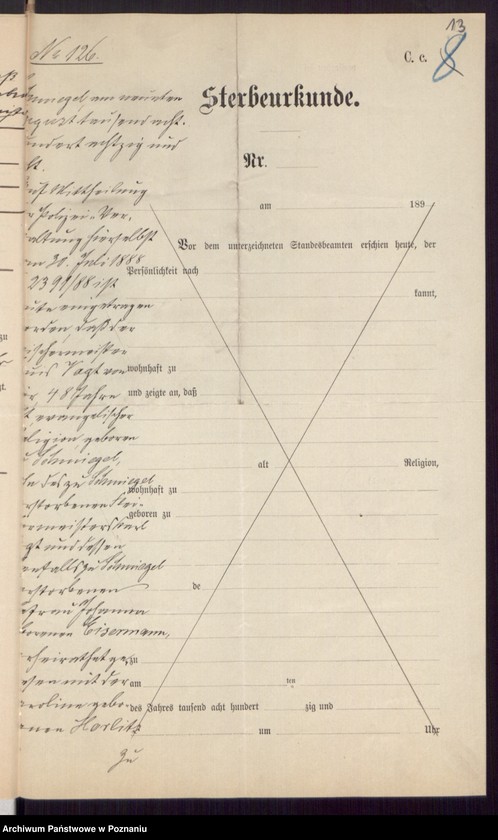 13
8
C. c.
No 126.
Sterbeurkunde.
Schmiegel am neunten
August tausend acht
hundert achtzig und
Nr.
Auf Mittheilung
am 189
der Polizei-Ver-
waltung hierselbst
Vor dem unterzeichneten Standesbeamten erschien heute, der
vom 20. Juli 1888
Persönlichkeit nach
2391/88 ist
kannt,
heute eingetragen
worden, daß der
Tischermeister
Vogt von
wohnhaft zu
hier, 48 Jahre
und zeigte an, daß
alt, evangelischer
Religion, geboren
zu Schmiegel,
alt Religion,
Sohn des zu Schmiegel
wohnhaft zu
verstorbenen
geboren zu
Karl
Vogt und dessen
ebenfalls zu Schmiegel
verstorbenen
de
Ehefrau Johanna
geborenen Eisermann,
verheirathet ge-
zu
wesen mit der
am ten
Karoline gebo-
des Jahres tausend acht hundert zig und
renen Horlitz
um Uhr
zu
Archiwum Państwowe w Poznaniu